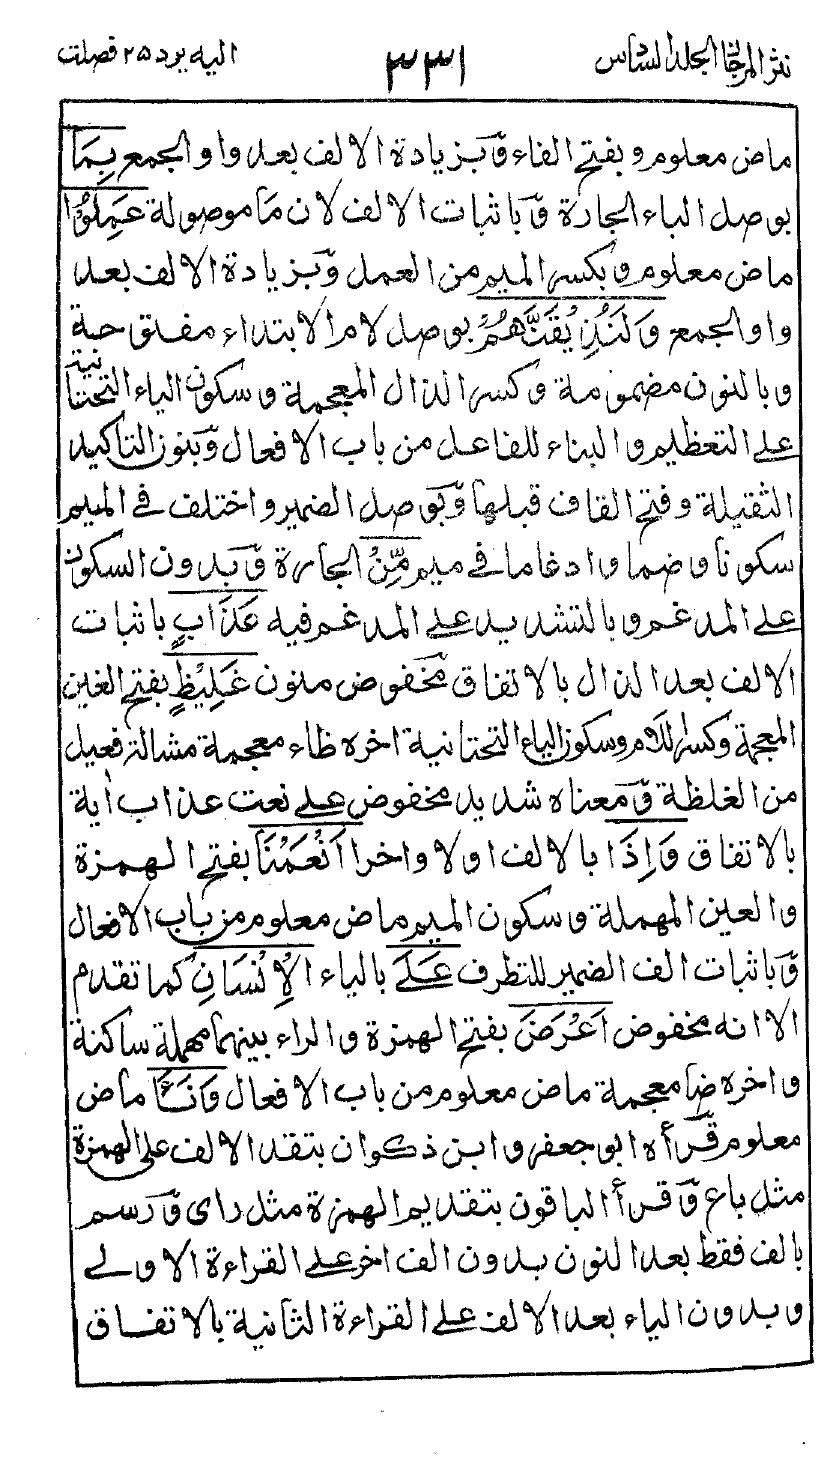 نثر المرجان المجلد السادس ٣٣١ اليه يرد ٢٥ فصلت
ماض معلوم وبفتح الفاء وَبزيادة الالف بعد واو الجمع بِمَا
بوصل الباء الجارة وَباثبات الالف لان مَا موصولة عَمِلُوْا
ماض معلوم وبكسر الميم من العمل وَبزيادة الالف بعد
واو الجمع وَلَنُذِيْقَنَّهُمْ بوصل لام الابتداء مفتوحة
وبالنون مضمومة وكسر الذال المعجمة وسكون الياء التحتانية
على التعظيم والبناء للفاعل من باب الافعال وَبنون التاكيد
الثقيلة وفتح القاف قبلها وَبوصل الضمير واختلف فى الميم
سكونا وضما وادغاما فى ميم مِّنْ الجارة وَبدون السكون
على المدغم وبالتشديد على المدغم فيه عَذَابٍ باثبات
الالف بعد الذال بالاتفاق مخفوض منون غَلِيْظٍ بفتح الغين
المعجمة وكسر اللام وسكون الياء التحتانية اخره ظاء معجمة مشالة فعيل
من الغلظة وَمعناه شديد مخفوض على نعت عذاب اٰية
بالاتفاق وَاِذَا بالالف اولا واخرا اَنْعَمْنَا بفتح الهمزة
والعين المهملة وسكون الميم ماض معلوم من باب الافعال
وَباثبات الف الضمير للتطرف عَلَى بالياء الْاِنْسَانِ كما تقدم
الا انه مخفوض اَعْرَضَ بفتح الهمزة والراء بينهما مهملة ساكنة
واخره ضاد معجمة ماض معلوم من باب الافعال وَنَاٰ ماض
معلوم قرأه ابو جعفر وابن ذكوان بتقد الالف على الهمزة
مثل باع وَقرأ الباقون بتقديم الهمزة مثل راى وَرسم
بالف فقط بعد النون بدون الف اخر على القراءة الاولے
وبدون الياء بعد الالف على القراءة الثانية بالاتفاق